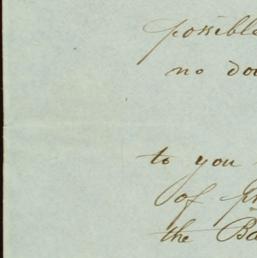 possible
no do
to you
of
the Ba